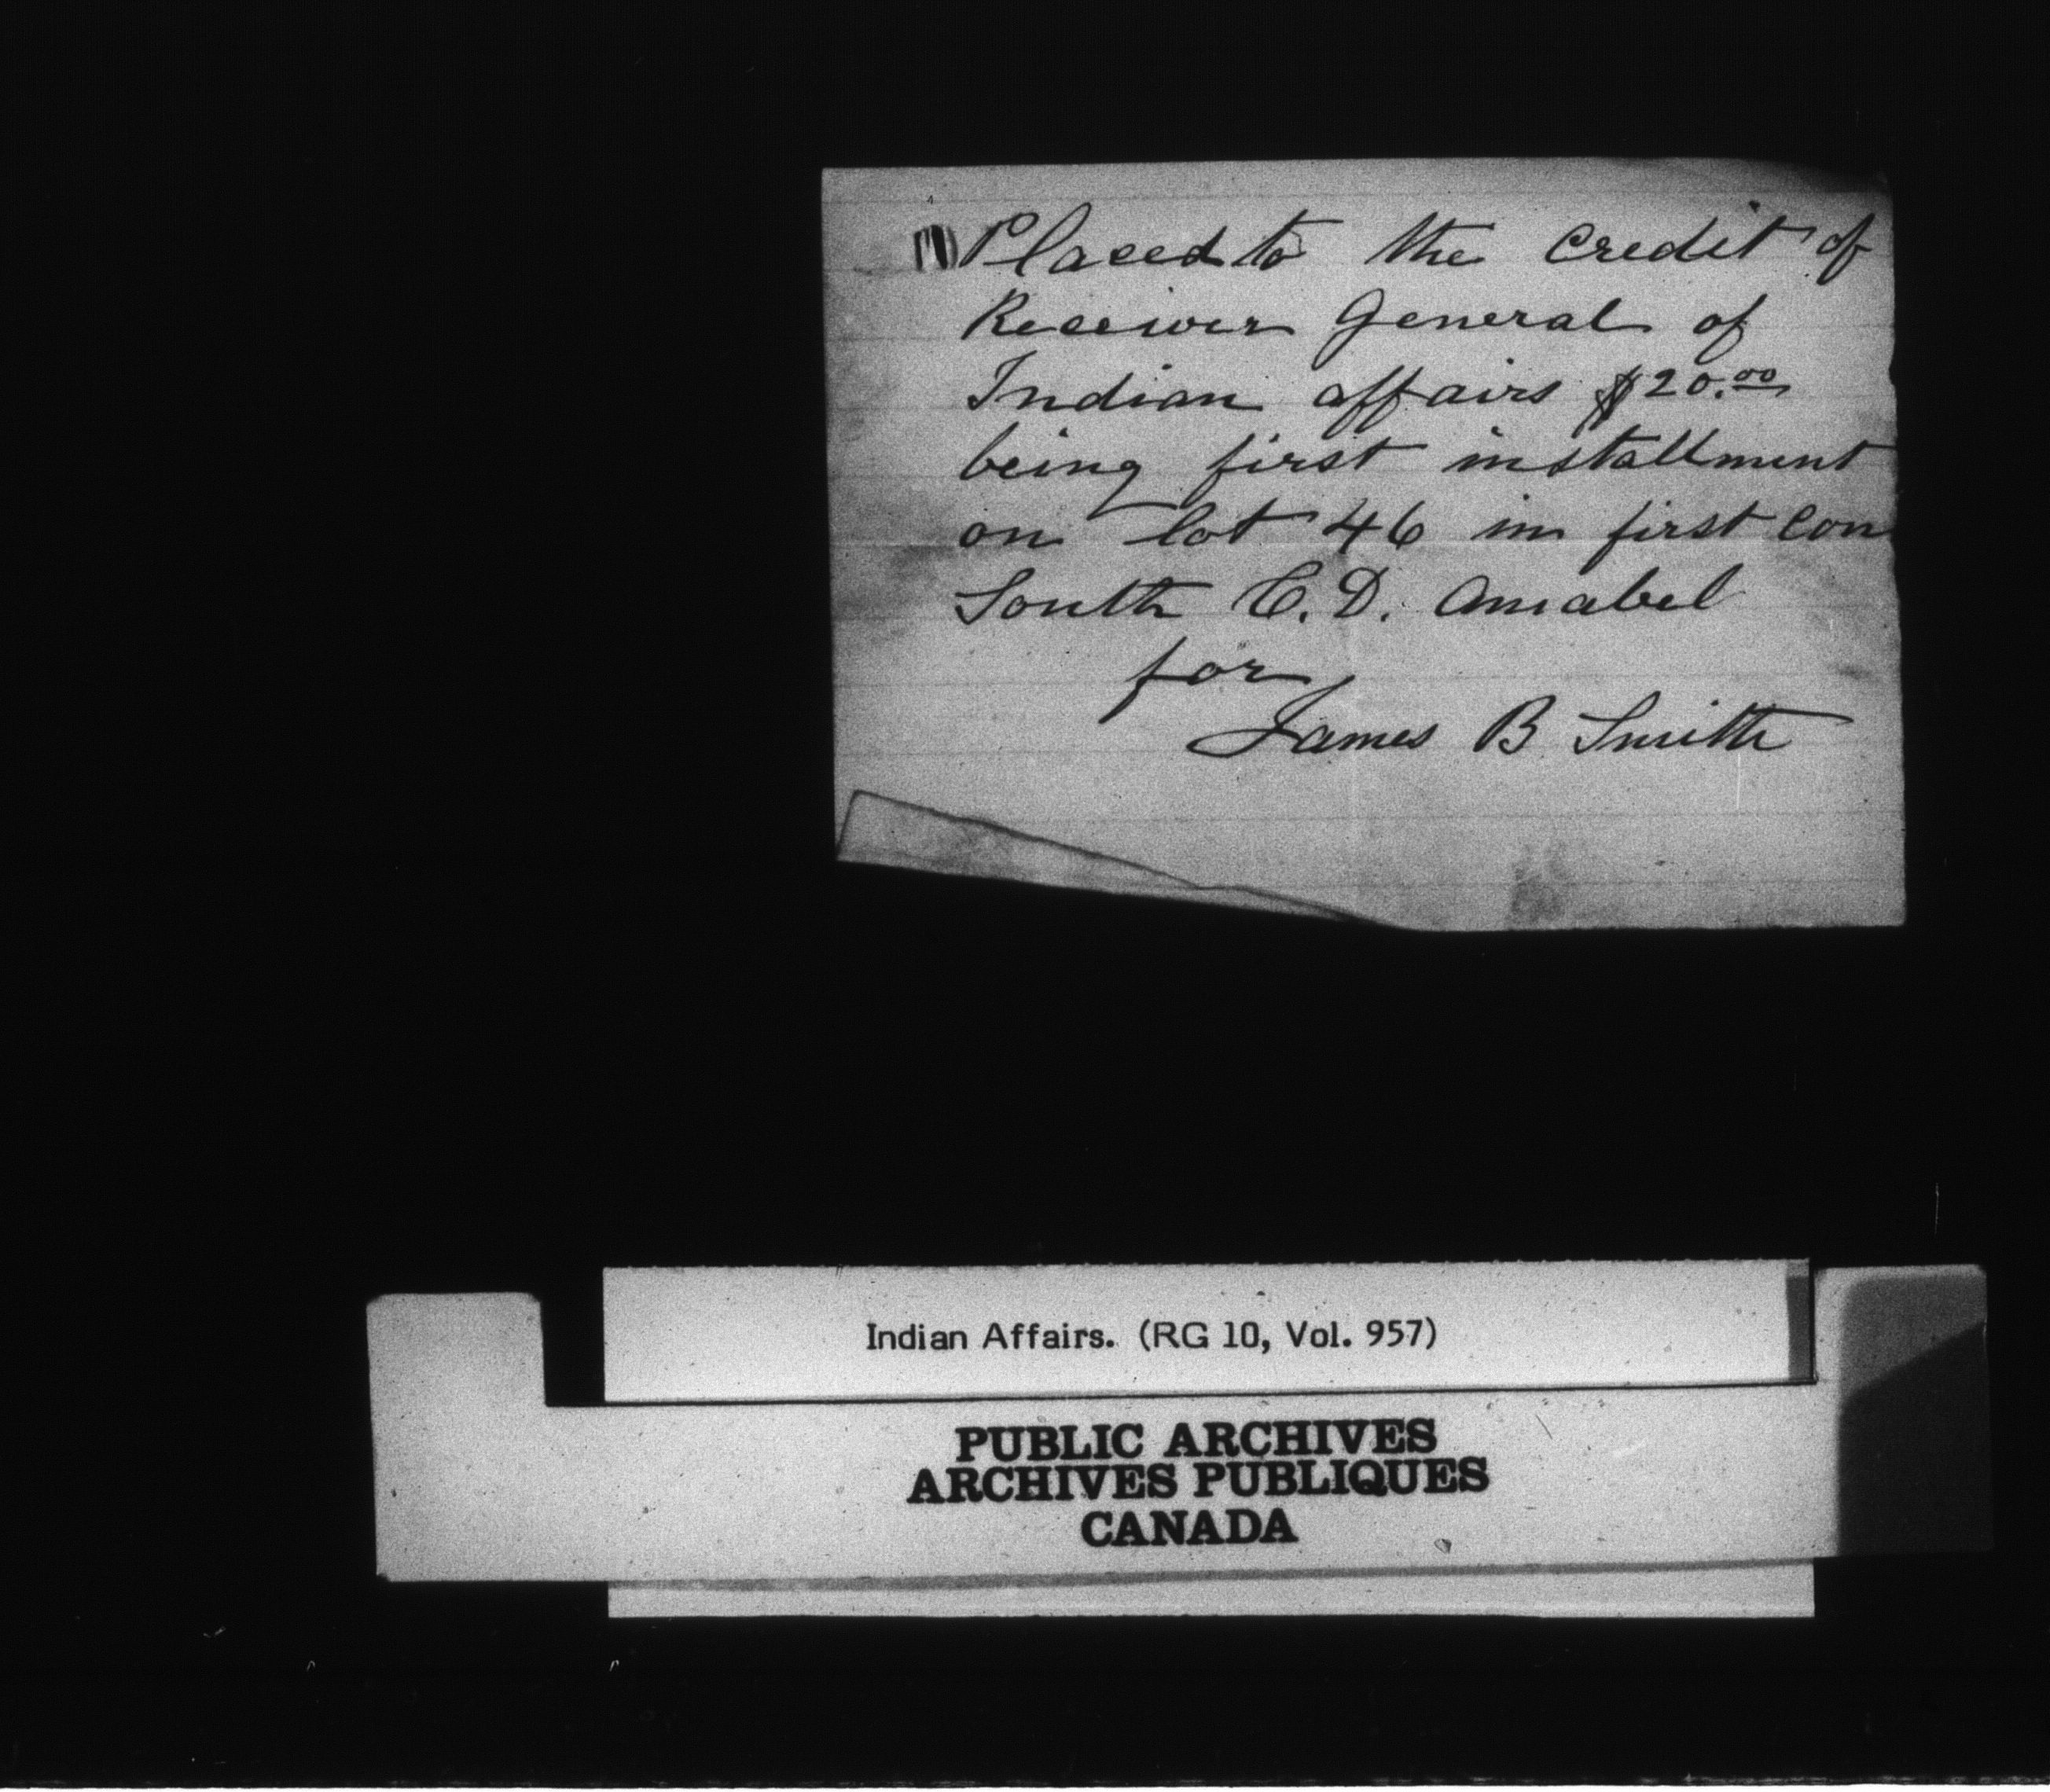 Placed to the credit of
Receiver General of
Indian affairs $20.00
being first installment
on lot 46 in first con
South C. D. Amabel
for
James B Smith
Indian Affairs. (RG 10, Vol. 957)
PUBLIC ARCHIVES
ARCHIVES PUBLIQUES
CANADA